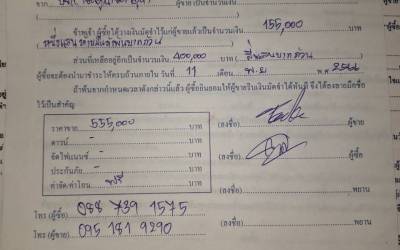 ผู้ขาย เป็นจำนวนเงิน
ข้าพเจ้า ผู้ซื้อได้วางเงินมัดจำไว้แก่ผู้ขายแล้วเป็นจำนวนเงิน 155,000 บาท
(หนึ่งแสนห้าหมื่นห้าพันบาทถ้วน)
ส่วนที่เหลืออยู่อีกเป็นจำนวนเงิน 400,000 บาท ( สี่แสนบาทถ้วน )
ผู้ซื้อจะต้องนำมาชำระให้ครบถ้วนภายใน วันที่ 11 เดือน พ.ย. พ.ศ. 2566
ถ้าพ้นจากกำหนดเวลาดังกล่าวนี้แล้ว ผู้ซื้อยินยอมให้ผู้ขายริบเงินมัดจำได้ทันที จึงได้ลงลายมือชื่อ
ไว้เป็นสำคัญ
ราคาขาย 555,000 บาท
(ลงชื่อ) ผู้ขาย
ดาวน์ - บาท
จัดไฟแนนซ์ - บาท
(ลงชื่อ) ผู้ซื้อ
ประกันภัย - บาท
ค่าจัด/ค่าโอน ฟรี บาท
(ลงชื่อ) พยาน
โทร (ผู้ซื้อ) 088 739 1575
โทร (ผู้ขาย) 095 181 9290
(ลงชื่อ) พยาน